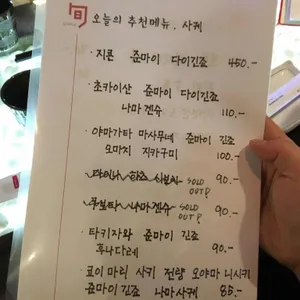 旬
오늘의 추천메뉴, 사케
· 지콘 준마이 다이긴죠 450.-
· 쵸카이산 준마이 다이긴죠
나마겐슈 110.-
· 야마가타 마사무네 준마이 긴죠
오마치 지카구미 100.-
SOLD OUT! 90.-
나마겐슈 SOLD OUT! 90.-
· 타키자와 준마이 긴죠
후나다레 90.-
· 코이마리 사키 전량 오야마니시키
준마이 긴죠 나마사케 85.-